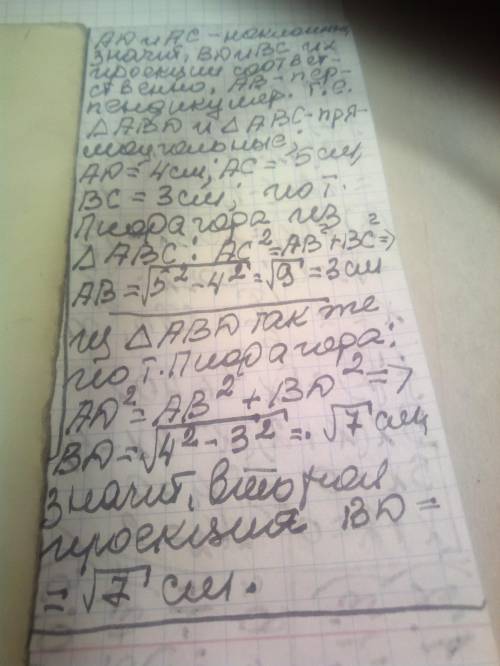 AD и AC - наклонные,
значит, BD и BC их
проекции соответ-
ственно, AB - пер-
пендикуляр. т.е.
△ ABD и △ ABC - пря-
моугольные;
AD = 4см; AC = 5см,
BC = 3см; по т.
Пифагора из
△ ABC: AC² = AB² + BC² =>
AB = √5² - 4² = √9 = 3см
из △ ABD так же
по т. Пифагора:
AD² = AB² + BD² =>
BD = √4² - 3² = √7 см,
значит, вторая
проекция BD =
= √7 см.